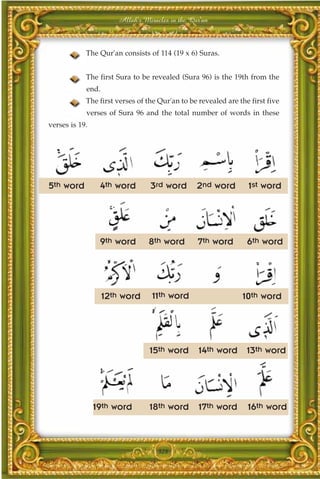 Allah's Miracles in the Qur'an
The Qur'an consists of 114 (19 x 6) Suras.
The first Sura to be revealed (Sura 96) is the 19th from the
end.
The first verses of the Qur'an to be revealed are the first five
verses of Sura 96 and the total number of words in these
verses is 19.
اِقْرَاْ بِاسْمِ رَبِّكَ الَّذِى خَلَقَ
5th word 4th word 3rd word 2nd word 1st word
خَلَقَ الْاِنْسَانَ مِنْ عَلَقٍ
9th word 8th word 7th word 6th word
اِقْرَاْ وَ رَبُّكَ الْاَكْرَمُ
12th word 11th word 10th word
الَّذِى عَلَّمَ بِالْقَلَمِ
15th word 14th word 13th word
عَلَّمَ الْاِنْسَانَ مَا لَمْ يَعْلَمْ
19th word 18th word 17th word 16th word